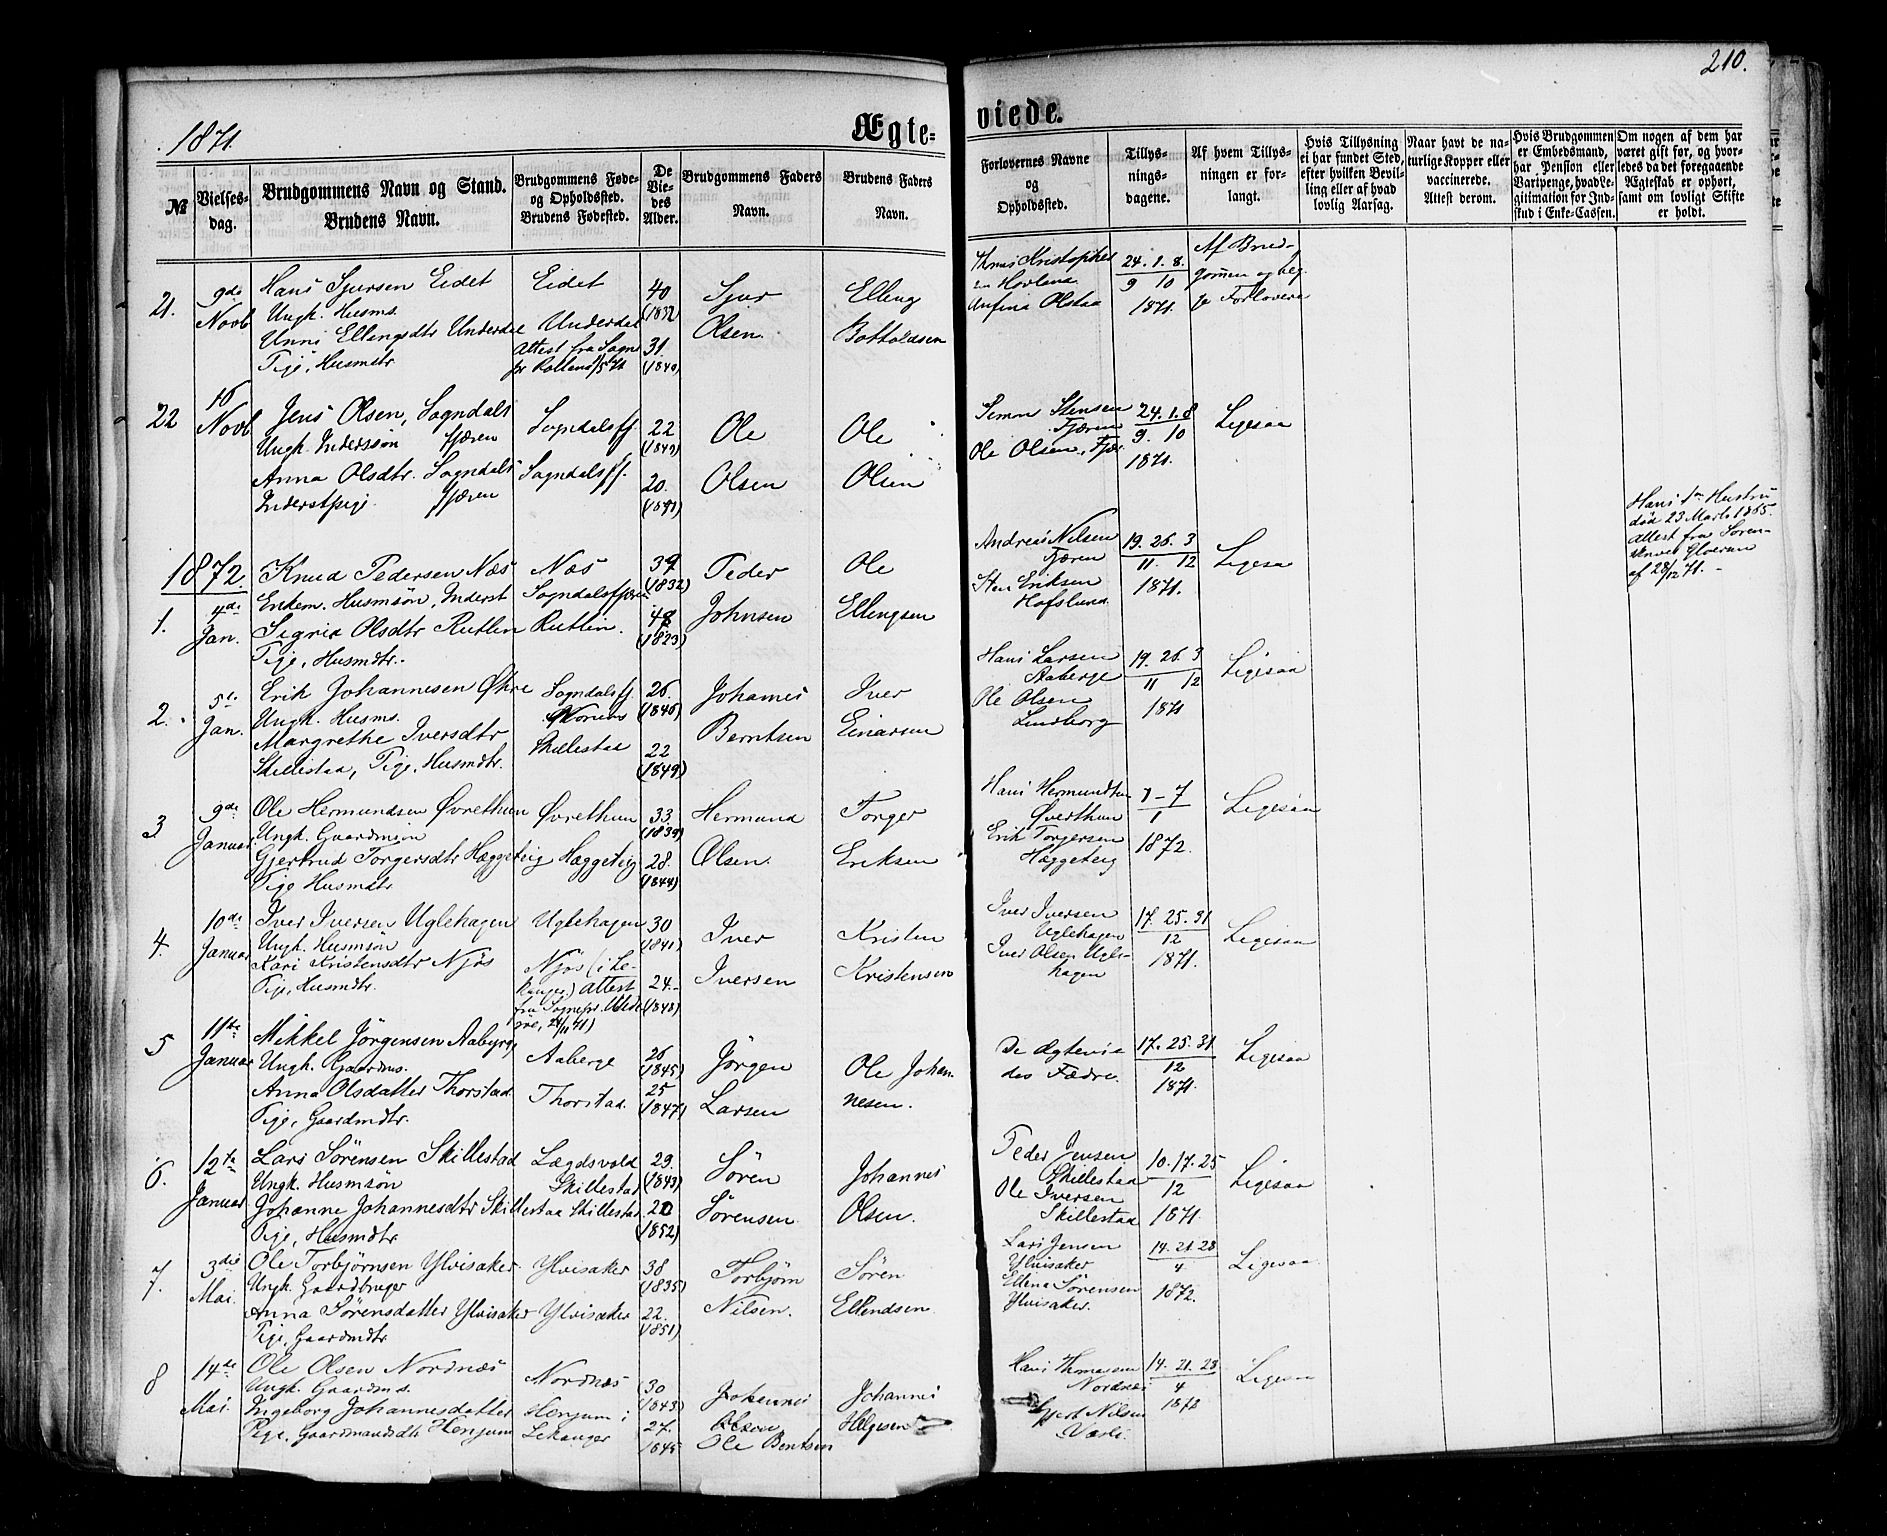 210.
1871.
Ægte-
viede.
№
Vielses-
dag.
Brudgommens Navn og Stand.
Brudens Navn.
Brudgommens Føde-
og Opholdssted.
Brudens Fødested.
De
Vie-
des
Alder.
Brudgommens Faders
Navn.
Brudens Faders
Navn.
Forlovernes Navne
og
Opholdssted.
Tillys-
nings-
dagene.
Af hvem Tillys-
ningen er for-
langt.
Hvis Tillysning
ei har fundet Sted,
efter hvilken Bevil-
ling eller af hvad
lovlig Aarsag.
Naar havt de na-
turlige Kopper eller
vaccinerede.
Attest derom.
Hvis Brudgommen
er Embedsmand,
har Pension eller
Vartpenge, hvad Le-
gitimation for Ind-
skud i Enke-Cassen.
Om nogen af dem har
været gift før, og hvor-
ledes da det foregaaende
Ægteskab er ophørt,
samt om lovligt Skifte
er holdt.
21.
9de
Novb
Hans Sjursen Eidet
Ungk. Husms.
Unni Ellingsdtr Underdal
Pige, Husmdtr
Eidet
Underdal
Attest fra Sogne
pr
40
(1832)
31.
(1840)
Sjur
Olsen.
Elling
Botholdsen
Kristophers
Hovland
Olsen
24. 1. 8.
9 10
1871.
Af Brud-
gommen og beg-
ge Forlovere
22
16
Novb
Jens Olsen, Sogndals
Ungk. Inderssøn fjæren
Anna Olsdtr. Sogndals
Inderstpige. fjæren
Sogndalsfj.
Sogndalsfj.
22
(1849)
20.
Ole
Olsen
Ole
Olsen
Simon Stensen
Fjæren
Ole Olsen, Fjær.
24. 1. 8
9. 10
1871.
Ligesaa
1872
1.
4de
Jan.
Knud Pedersen Næs
Enkem. Husmsøn, Inderst
Sigrid Olsdtr Rutlin
Pige, Husmdtr.
Næs
Sogndalsfjæren
Rutlin.
39
(1832)
48
(1823)
Peder
Johnsen
Ole
Ellingsen
Andreas Nilsen
Fjæren
Sten Eriksen
Hofslund.
19. 26. 3
11. 12
1871.
Ligesaa
Hans 1ste Hustru
død 23 Marts 1865.
Attest fra Soren-
skriver
af 28/12 71.
2.
5te
Jan.
Erik Johannesen Øhre
Ungk. Husms.
Margrethe Iversdtr
Skillestad, Pige, Husmdtr.
Sogndalsfj.
Norum
Skillestad
26.
(1846)
22
(1849)
Johannes
Berntsen
Iver
Einarsen
Hans Larsen
Aaberge
Ole Olsen
Lindborg
19. 26. 3
11 12
1871
Ligesaa
3
9de
Januar.
Ole Hermundsen Øvrethun
Ungk. Gaardmsøn
Gjertrud Torgersdtr Hæggeteig
Pige Husmdtr
Øvrethun
Hæggeteig
33.
(1839)
28.
(1844)
Hermund
Olsen.
Torger
Eriksen
Hans Hermundsen
Øvrethun
Erik Torgersen
Hæggeteig
1 - 7
1
1872.
Ligesaa
4.
10de
Januar
Iver Iversen Uglehagen
Ungk. Husmsøn
Kari Kristensdtr Njøs
Pige, Husmdtr.
Uglehagen
Njøs (i Le-
kanger.) Attest
fra Sognepr. Ulde-
(1841)
30
24.-
(1848)
Iver
Iversen
Kristen
Kristensen
Iver Iversen
Uglehagen
Iver Olsen Ugle-
hagen
17. 25. 31
12
1871.
Ligesaa
5
11te
Januar
Mikkel Jörgensen Aaberge
Ungk. Gaardms.
Anna Olsdatter Thorstad
Pige, Gaardmdtr.
Aaberge
Thorstad.
26
(1845)
25
(1847)
Jörgen
Larsen
Ole Johan-
nesen.
De Ægtevie-
des Fædre.
17. 25. 31
12
1871.
Ligesaa
6.
12te
Januar
Lars Sörensen Skillestad
Ungk. Husmsøn
Johanne Johannesdtr Skillestad
Pige, Husmdtr
Lægdsvold
Skillestad
Skillestad
29.
(1843)
20
(1852)
Sören
Sörensen
Johannes
Olsen.
Peder Jensen
Skillestad
Ole Iversen
Skillestad
10. 17. 25
12
1871.
Ligesaa
7.
3die
Mai.
Ole Torbjörnsen Ylvisaker
Ungk. Gaardbruger
Anna Sörensdatter Ylvisaker
Pige, Gaardmdtr
Ylvisaker
Ylvisaker
38
(1835)
22.
(1851)
Torbjörn
Nilsen.
Sören
Ellendsen.
Lars Jensen
Ylvisaker
Ellend Sörensen
Ylvisaker.
14. 21. 28
4
1872.
Ligesaa
8
14de
Mai.
Ole Olsen Nordnæs
Ungk. Gaardms.
Ingeborg Johannesdatter
Pige. Gaardmandsdtr Henjum
Nordnæs
Henjum i
Lekanger
30
(1843)
27.
1845
Johannes
Olsen
Ole Bentsen
Johannes
Helgesen
Hans Thomassen
Nordnæs
Gjert Nilsen
14. 21. 28
4
1872
Ligesaa